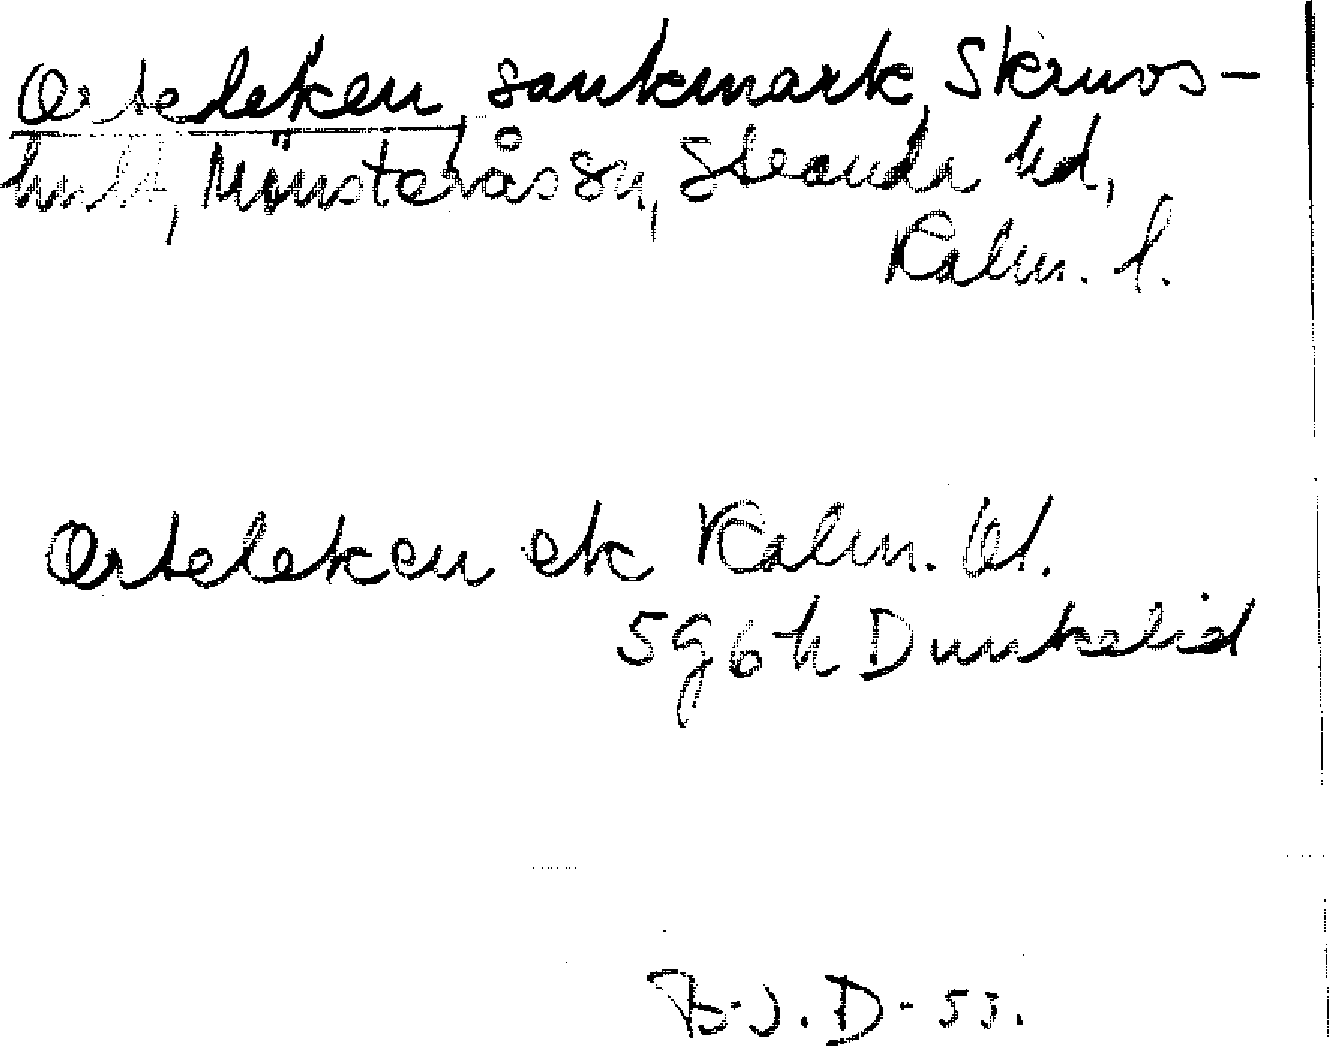 Orteleken sankmark, Skruvs-
hult, Mönsterås sn, Stranda hd,
Kalm. l.
Orteleken ek Kalm. bl.
5g6h Dunkelid
B.J.D-53.